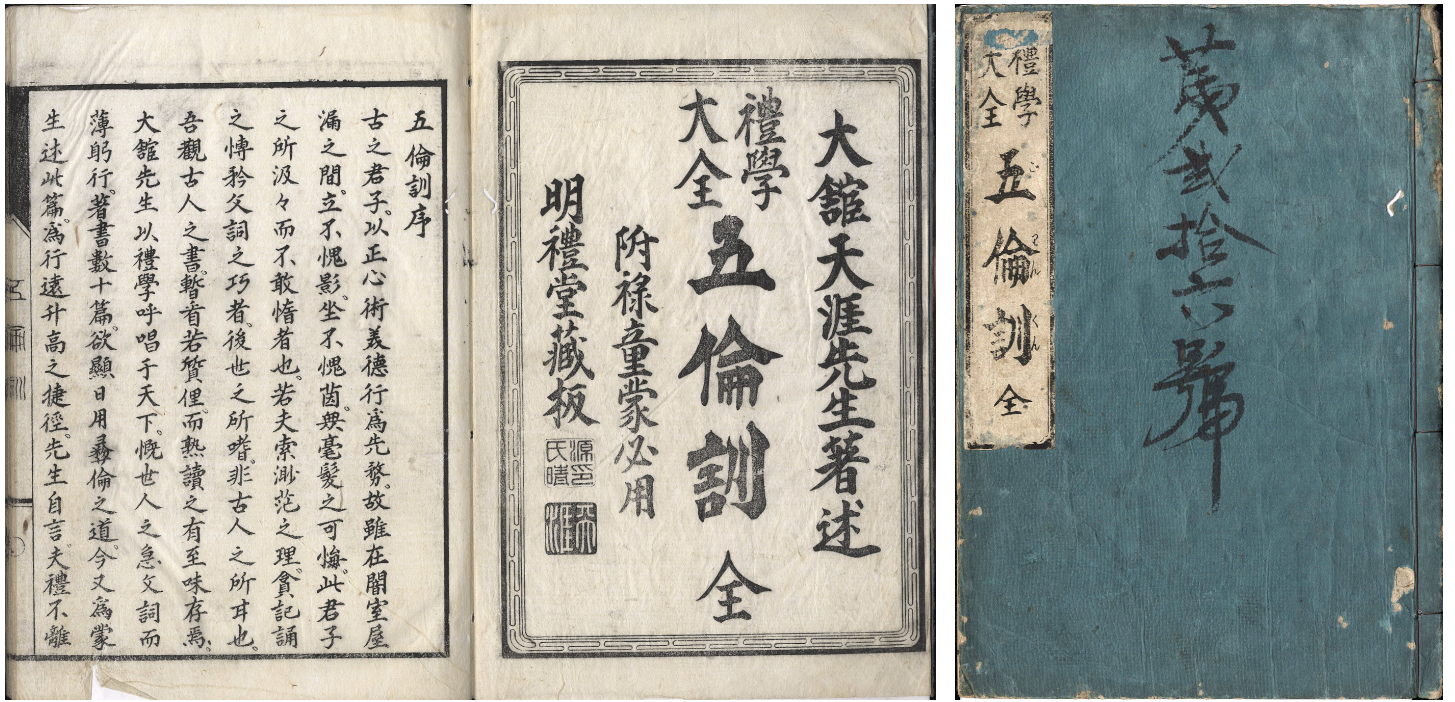 禮學
大全
五倫訓
ごりんくん
全
貳拾六號
大舘天涯先生著述
禮學
大全
五倫訓 全
附祿童蒙必用
明禮堂藏板
五倫訓序
古之君子以正心術義德行爲先務。故雖在闇室屋
漏之間。立不愧影。坐不愧茵。無毫髮之可悔。此君子
之所汲々而不敢惰者也。若夫索渺茫之理。貪記誦
之博。矜文詞之巧者。後世之所嗜。非古人之所耳也。
吾觀古人之書。暫看若質俚。而熟讀之有至味存焉。
大舘先生以禮學呼唱于天下。慨世人之急文詞而
薄躬行。著書數十篇。欲顯日用彜倫之道。今又爲蒙
生述此篇。爲行遠升高之捷徑。先生自言。夫禮不離
五倫訓